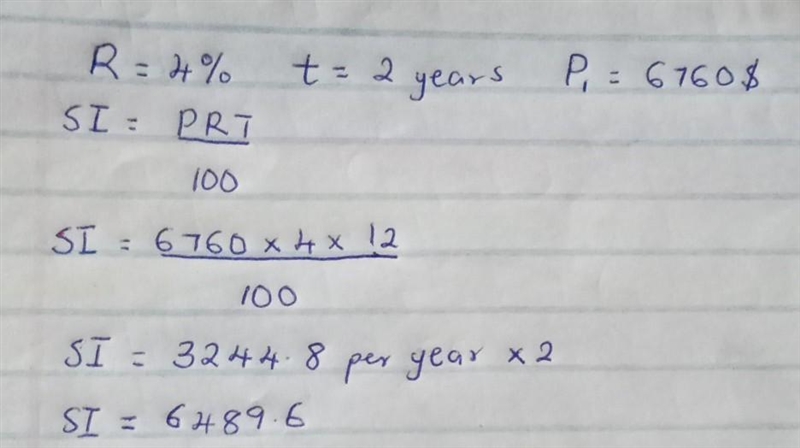 R = 4% t = 2 years P₁ = 6760$
SI = PRT
100
SI = 6760 × 4 × 12
100
SI = 3244.8 per year × 2
SI = 6489.6